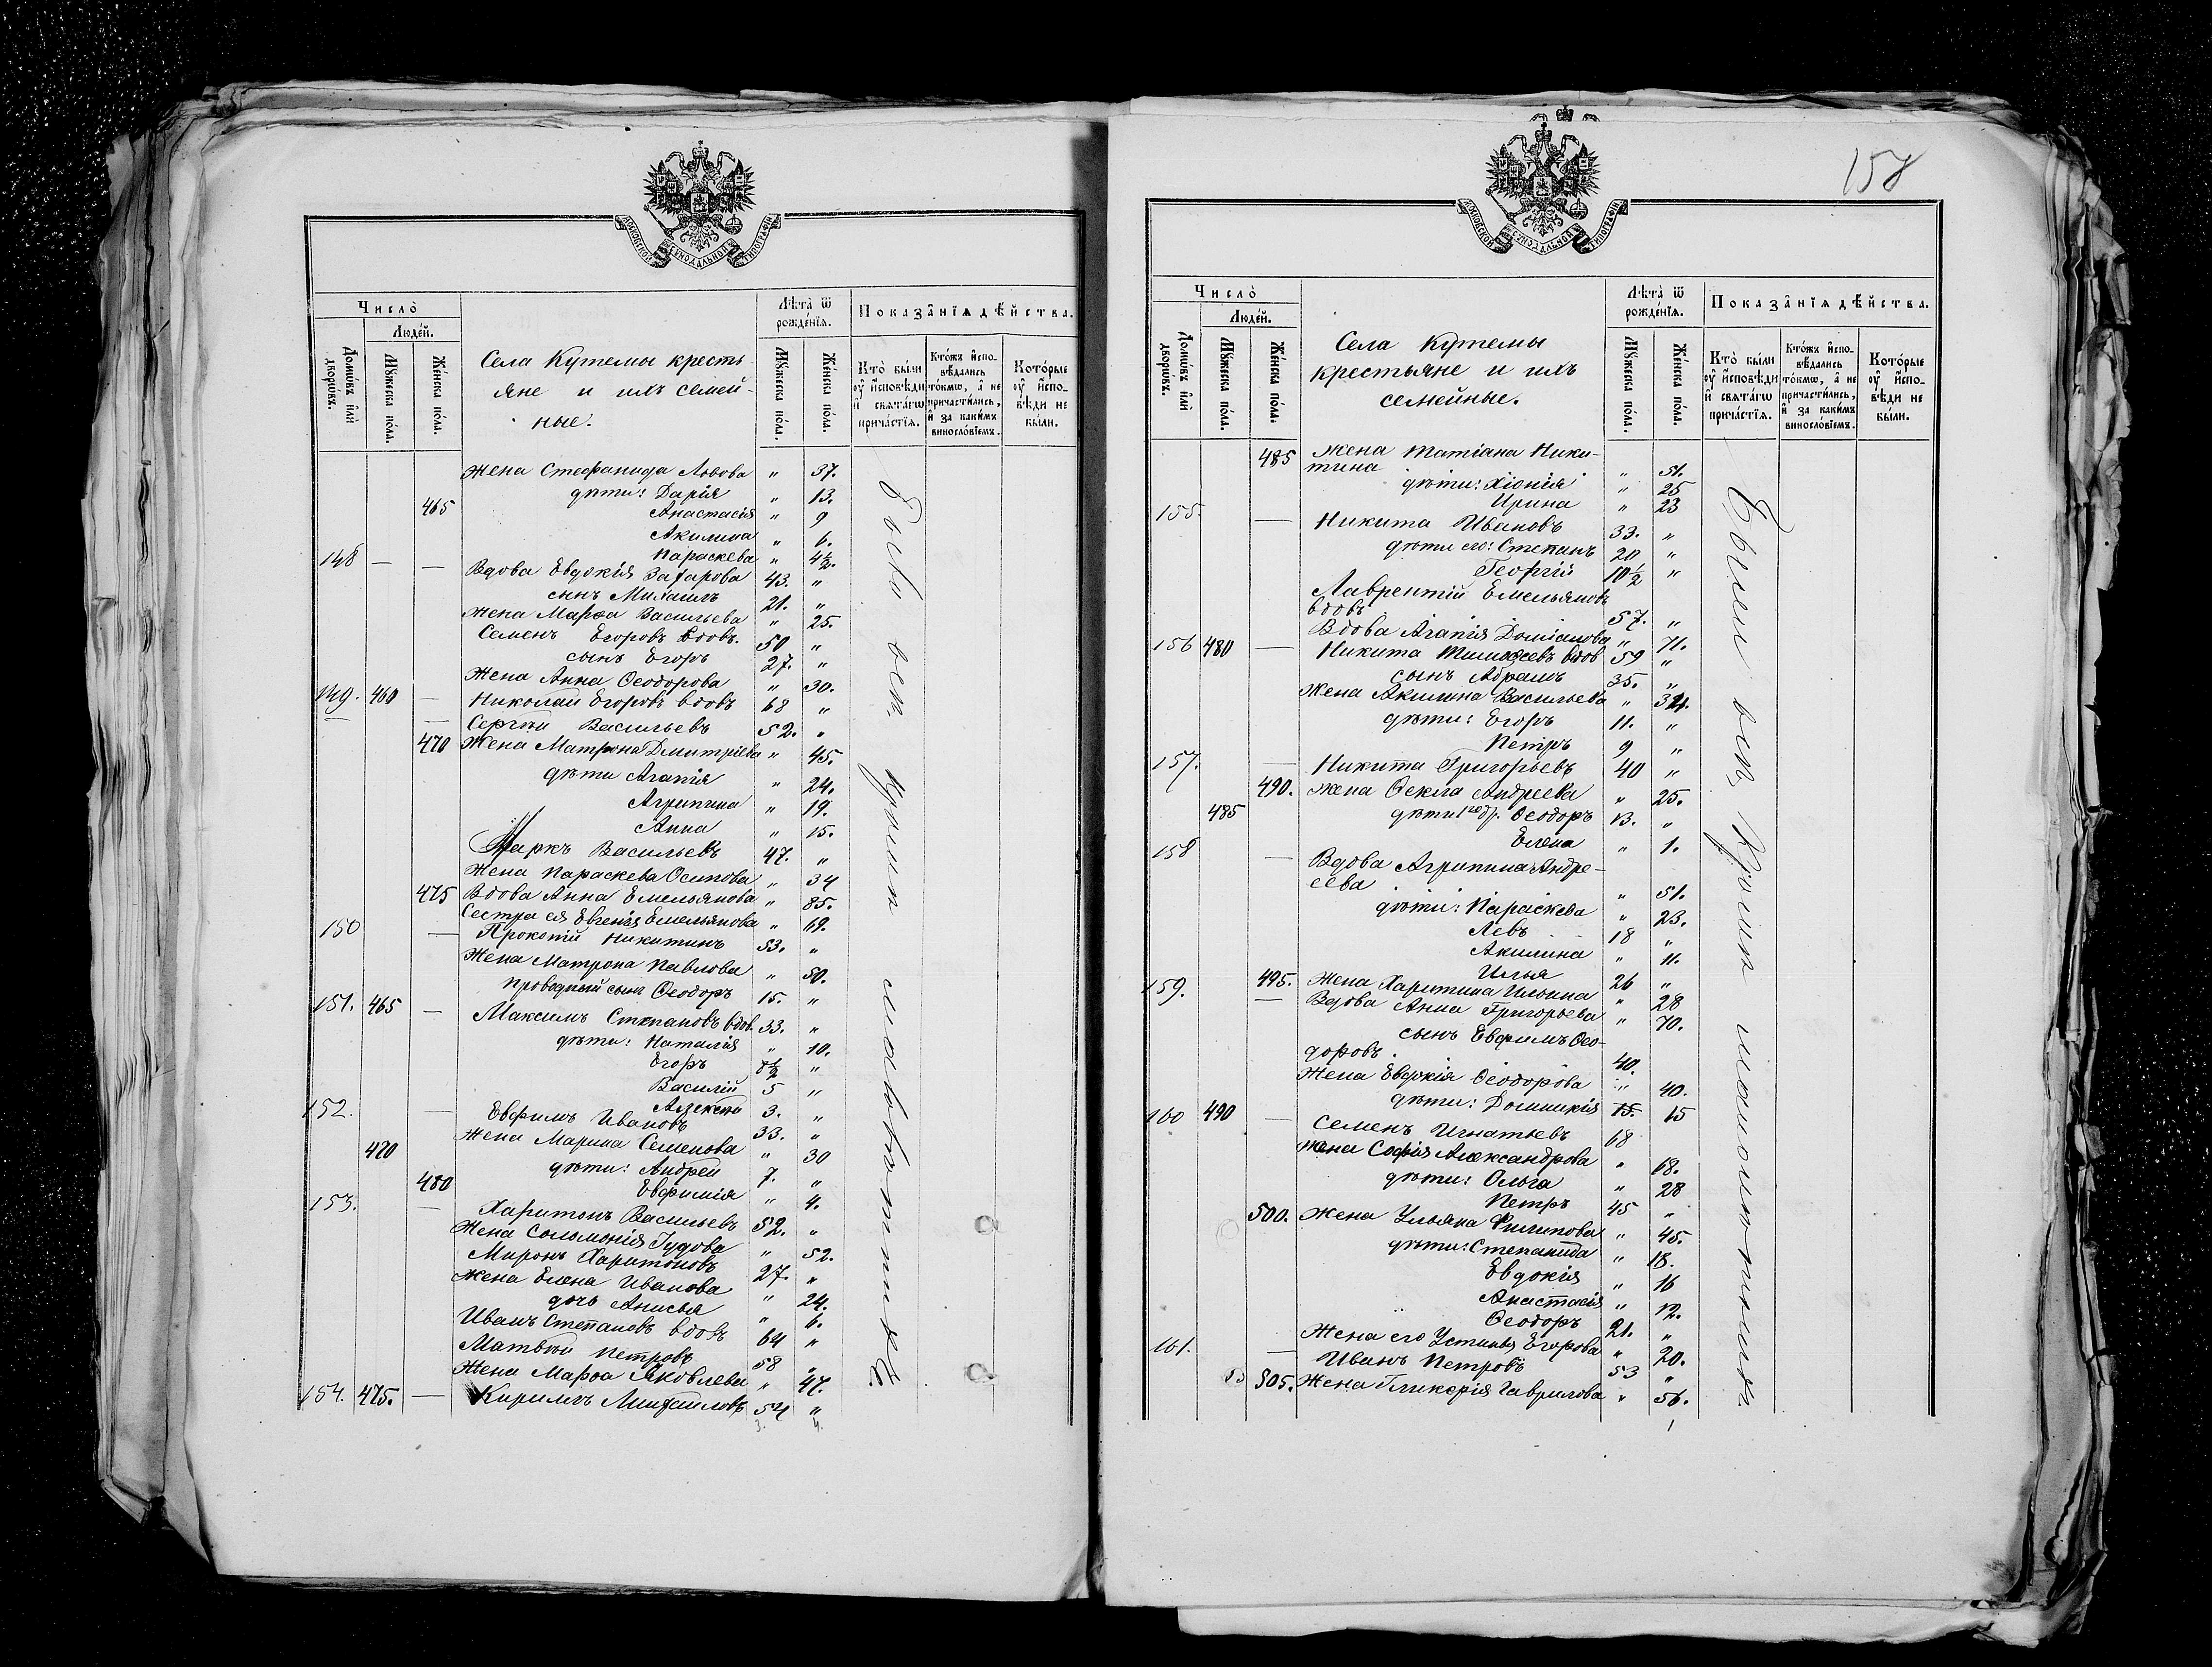 МОСКОВСКОЙ СѴНОДАЛЬНОЙ ТИПОГРАФІИ
Число̀
Людéй.
Домѡ́въ и҆лѝ дворѡ́въ.
Мꙋ́жеска по́ла.
Же́нска по́ла.
Села Кутемы кресть-
яне и ихъ семей-
ные.
Лѣта̀ ѿ рожде́нїѧ.
Мꙋ́жеска по́ла.
Же́нска по́ла.
Показа̂нїѧ дѣ́йства.
Кто̀ бы́ли оу҆ и҆сповѣди и҆ свѧта́гѡ прича́стїѧ.
Кто́жъ и҆спо- вѣдались то́кмѡ, а҆ не причасти́лись, и҆ за каки́мъ винослóвїемъ.
Кото́рые оу҆ и҆спо- вѣди не бы́ли.
Жена Стефанида Львова " 37.
дѣти: Дарія " 13.
465 Анастасія " 9
Акилина " 6.
Параскева " 4½.
148 — — Вдова Евдокія Захарова 43. "
сынъ Михаилъ 21. "
Жена Марѳа Васильева " 25.
Семенъ Егоровъ вдовъ. 50 "
сынъ Егоръ 27. "
Жена Анна Ѳеодорова " 30.
149. 460 — Николай Егоровъ вдовъ 68 "
— Сергѣй Васильевъ 52. "
470 Жена Матрона Дмитріева " 45.
дѣти Агапія " 24.
Агрипина " 19.
Анна " 15.
Маркъ Васильевъ 47. "
Жена Параскева Осипова " 34
475 Вдова Анна Емельянова " 85.
Сестра ея Евгенія Емельянова " 69.
150 — Прокопій Никитинъ 53. "
Жена Матрона Павлова " 50.
сынъ Ѳеодоръ 15. "
151. 465 — Максимъ Степановъ вдов. 33. "
дѣти: Наталія " 10.
Егоръ 8½ "
Василій 5 "
Алексѣй 3. "
152. — Евфимъ Ивановъ 33. "
Жена Марина Семенова " 30
470 дѣти: Андрей 7. "
480 Евфимія " 4.
153. — Харитонъ Васильевъ 52. "
Жена Соломонія Іудова " 52.
Миронъ Харитоновъ 27. "
Жена Елена Иванова " 24.
дочь Анисья " 6.
Иванъ Степановъ вдовъ 64 "
Матвѣй Петровъ 58 "
Жена Марѳа Яковлева " 47.
154. 475. — Кирилъ Михаиловъ 54 "
3. 4.
158
МОСКОВСКОЙ СѴНОДАЛЬНОЙ ТИПОГРАФІИ
Число̀
Людéй.
Домѡ́въ и҆лѝ дворѡ́въ.
Мꙋ́жеска по́ла.
Же́нска по́ла.
Села Кутемы
крестьяне и ихъ
семейные.
Лѣта̀ ѿ рожде́нїѧ.
Мꙋ́жеска по́ла.
Же́нска по́ла.
Показа̂нїѧ дѣ́йства.
Кто̀ бы́ли оу҆ и҆сповѣди и҆ свѧта́гѡ прича́стїѧ.
Кто́жъ и҆спо- вѣдались то́кмѡ, а҆ не причасти́лись, и҆ за каки́мъ винослóвїемъ.
Кото́рые оу҆ и҆спо- вѣди не бы́ли.
485 Жена Татіана Ники-
тина " 51.
дѣти: Хіонія " 25
Ирина " 23
155. — Никита Ивановъ 33. "
дѣти его: Степанъ 20 "
Георгій 10½ "
Лаврентій Емельяновъ
вдовъ 57. "
Вдова Агапія Доміанова " 71.
156 480 — Никита Тимоѳеевъ вдов 59 "
сынъ Абрамъ 35. "
Жена Акилина Васильева " 34.
дѣти: Егоръ 11. "
Петръ 9 "
157. — Никита Григорьевъ 40 "
490. Жена Ѳекла Андреева " 25.
485 дѣти 1го бр. Ѳеодоръ 13. "
Елена " 1.
158 — Вдова Агрипина Андре-
еева " 51.
дѣти: Параскева " 23.
Левъ 18 "
Акилина " 11.
Илья 26 "
159. 495. Жена Харитина Ильина " 28
— Вдова Анна Григорьева " 70.
сынъ Евфимъ Ѳео-
доровъ 40.
Жена Евдокія Ѳеодорова " 40.
дѣти: Домникія 15. 15
160 490 — Семенъ Игнатьевъ 68
Жена Софія Александрова " 68.
дѣти: Ольга " 28
Петръ 45 "
500. Жена Ульяна Филипова " 45.
дѣти: Степанида " 18.
Евдокія " 16
Анастасія " 12.
Ѳеодоръ 21. "
Жена его Устинья Егорова " 20.
161. — Иванъ Петровъ 53 "
505. Жена Гликерія Гаврилова " 56.
1